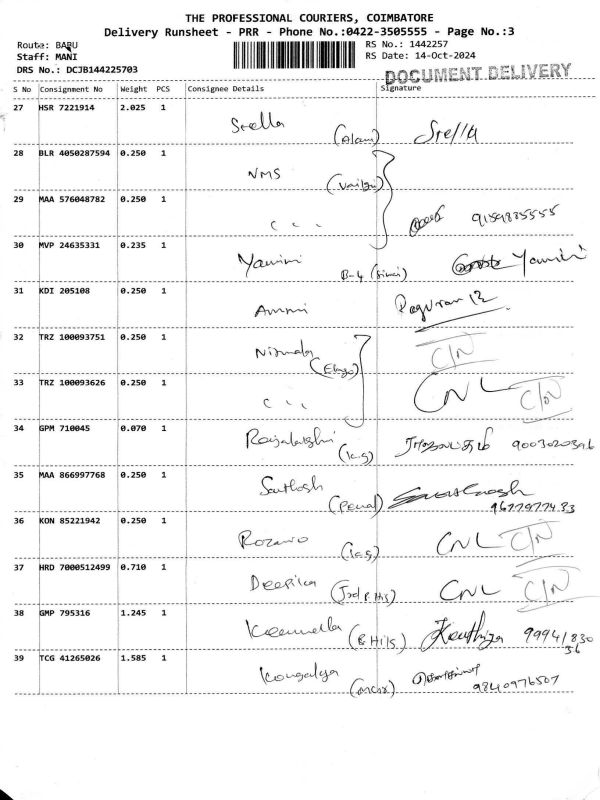 THE PROFESSIONAL COURIERS, COIMBATORE
Delivery Runsheet - PRR - Phone No.:0422-3505555 - Page No.:3
Route: BABU
RS No.: 1442257
Staff: MANI
RS Date: 14-Oct-2024
DRS No.: DCJB144225703
DOCUMENT DELIVERY
S No Consignment No Weight PCS Consignee Details Signature
27 HSR 7221914 2.025 1 Stella (Alam) Stella
28 BLR 4050287594 0.250 1 NMS
29 MAA 576048782 0.250 1 " 9159885555
30 MVP 24635331 0.235 1 Yamini B-4 Yamini
31 KDI 205108 0.250 1 Ammi
32 TRZ 100093751 0.250 1 Nirmala C/N
33 TRZ 100093626 0.250 1 " CNL C/N
34 GPM 710045 0.070 1 Rajalakshmi (K.G)
35 MAA 866997768 0.250 1 Santhosh
36 KON 85221942 0.250 1 CNL C/N
37 HRD 7000512499 0.710 1 Deepika CNL C/N
38 GMP 795316 1.245 1 (B Hills)
39 TCG 41265026 1.585 1 9840976507